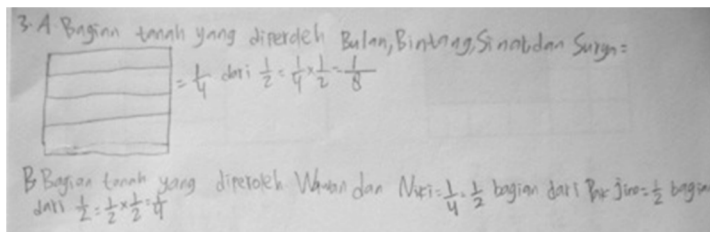 3. A. Bagian tanah yang diperoleh Bulan, Bintang, Sinar, dan Surya =
= 1/4 dari 1/2 = 1/4 x 1/2 = 1/8
B Bagian tanah yang diperoleh Wawan dan Nuri = 1/4 = 1/2 bagian dari Pak Jino = 1/2 bagian
dari 1/2 = 1/2 x 1/2 = 1/4